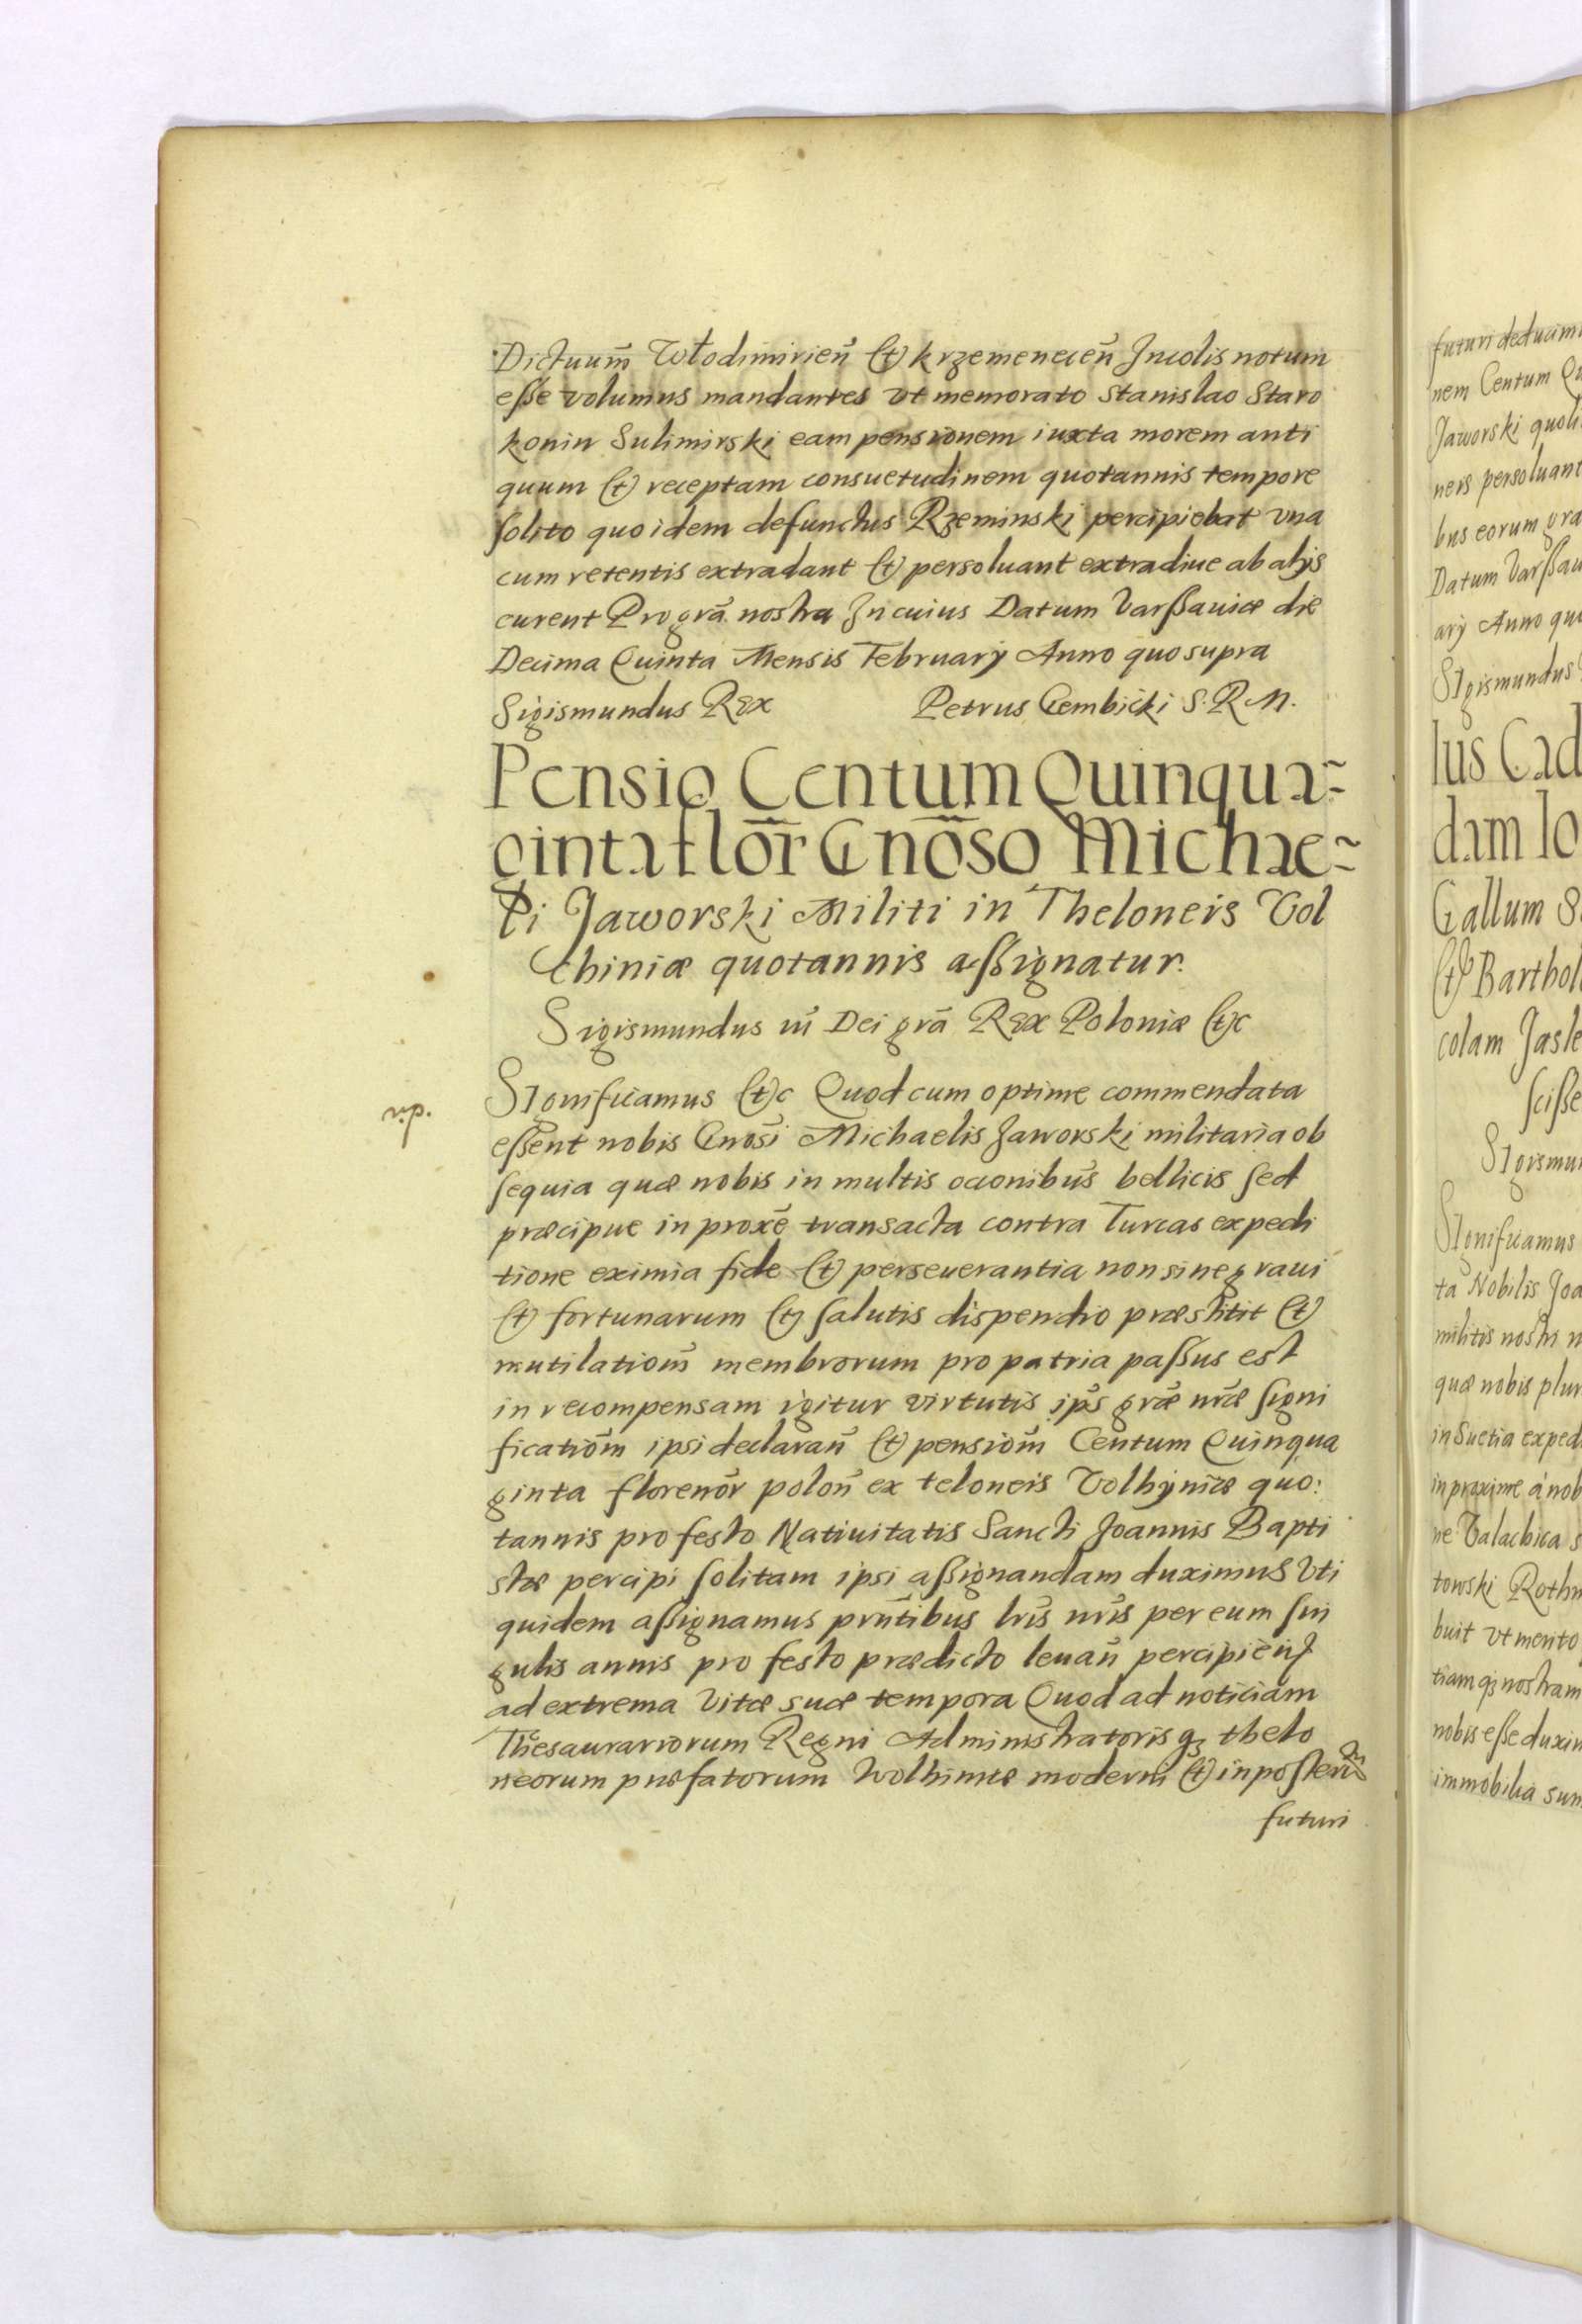 Dictuum̃ Włodimirien̄ (et) krzemenecen̄ Incolis notum
esse volumus mandantes vt memorato Stanislao Staro
konin Sulimirski eam pensionem iuxta morem anti
quum (et) receptam consuetudinem quotannis tempore
solito quo idem defunctus Rzeminski percipiebat vna
cum retentis extradant (et) persoluant extradiue ab alijs
curent Pro grā nostra In cuius Datum Varssauiæ die
Decima Quinta Mensis February Anno quo supra
Sigismundus Rex Petrus Gembicki S. R M.
Pensio Centum Quinqua-
ginta flor̄ Gnōso Michae-
li Jaworski Militi in Theloneis Vol
chiniæ quotannis assignatur.
Sigismundus iii Dei grā Rex Poloniæ (et)c
Significamus (et)c Quod cum optime commendata
essent nobis Gnosī Michaelis Jaworski militaria ob
sequia quæ nobis in multis occonibūs bellicis sed
præcipue in proxē transacta contra Turcas expedi
tione eximia fide (et) perseuerantia non sine graui
(et) fortunarum (et) salutis dispendio præstitit (et)
mutilatioñ membrorum pro patria passus est
in recompensam igitur virtutis ipś grǣ nrǣ signi
ficatiōm ipsi declaran̄ (et) pensiōm Centum Quinqua
ginta florenōr polon̄ ex teloneis Volhyniæ quo:
tannis pro festo Natiuitatis Sancti Joannis Bapti
stæ percipi solitam ipsi assignandam duximus Vti
quidem assignamus prn̄tibus lrīs nrīs per eum sin
gulis annis pro festo prædicto leuan̄ percipien̄
ad extrema vitæ suæ tempora Quod ad noticiam
Thesaurariorum Regni Administratorisq3 thelo
neorum præfatorum Wolhiniæ moderni (et) in posterū
futuri
futuri deducim
nem Centum Qu
Jaworski quoli
neis persoluant
bus eorum gra
Datum Varssau
arÿ Anno quo
Sigismundus
lus Cad
dam Io
Gallum S
(et) Barthol
colam Jasle
scisse
Sigismu
Significamus
ta Nobilis Joa
militis nostri n
quæ nobis plur
in Suetia exped
in proxime à nob
ne Valachica s
towski Rothm
buit vt merito
tiam q3 nostram
nobis esse duxim
immobilia sum